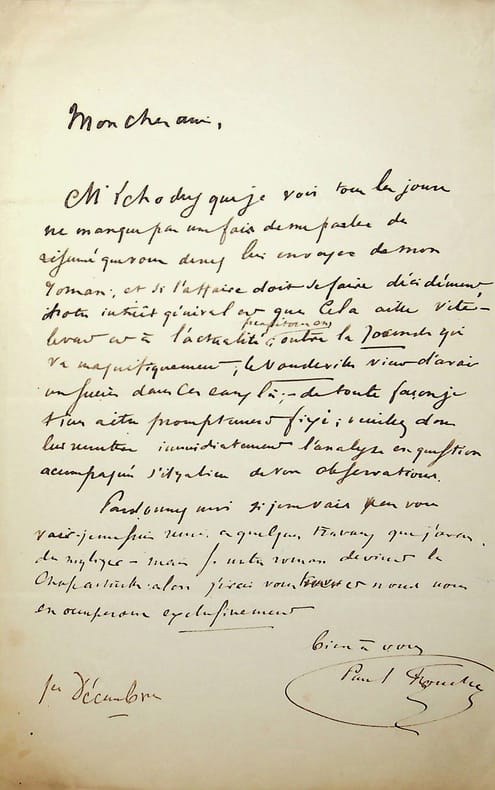 Mon cher ami,
que je vois tous les jours
ne manque pas une fois de me parler de
résumé que vous devez lui envoyer de mon
roman, et si l'affaire doit se faire décidément
notre intérêt général est que cela aille vite
est à l'actualité, outre la qui
va magnifiquement, le Vaudeville vient d'avoir
un succès dans ces eaux là; de toute façon je
tiens à être promptement fixé; veuillez donc
lui remettre immédiatement l'analyse en question
acompagné s'il y a lieu de vos observations.
Pardonnez moi si je ne vais pas vous
voir, je me suis remis à quelques travaux que j'avais
du négliger - mais si notre roman devient la
alors j'irai vous et nous nous
en occuperons exclusivement
bien à vous
Paul Foucher
1er Décembre